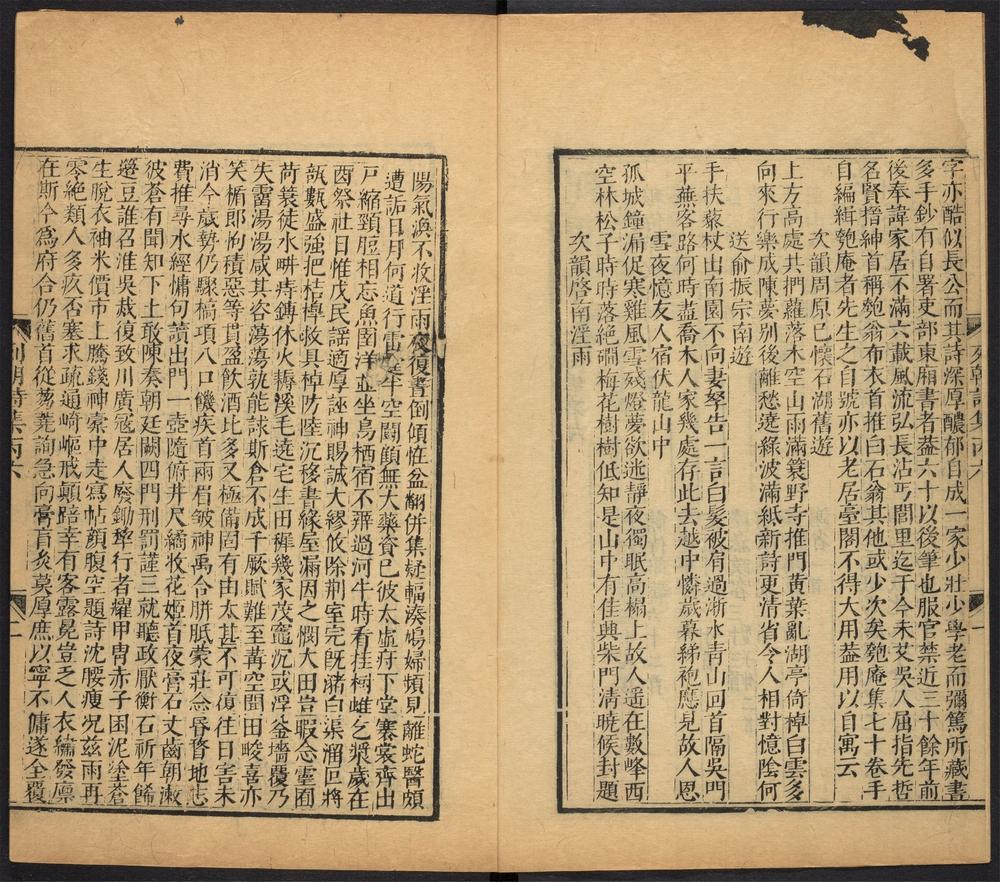 字亦酷似長公而其詩深厚醲郁自成一家少壯少學老而彌篤所藏書
多手鈔有自署吏部東廂書者葢六十以後筆也服官禁近三十餘年前
後奉諱家居不滿六載風流弘長沾丐閭里迄于今未艾吳人屈指先哲
名賢搢紳首稱匏翁布衣首推白石翁其他或少次矣匏庵集七十卷手
自編緝匏庵者先生之自號亦以老居臺閣不得大用葢用以自寓云
次韻周原已懷石湖舊遊
上方高處共捫蘿落木空山雨滿簑野寺推門黃葉亂湖亭倚棹白雲多
向來行樂成陳夢別後離愁遶綠波滿紙新詩更清省令人相對憶陰何
送俞振宗南遊
手扶藜杖出南園不向妻孥告一言白髮被肩過淛水青山回首隔吳門
平蕪客路何時盡喬木人家幾處存此去越中憐歲暮綈袍應見故人恩
雪夜憶友人宿伏龍山中
孤城鐘漏促寒雞風雪殘燈夢欲迷靜夜獨眠高榻上故人遥在數峰西
空林松子時時落絶磵梅花樹樹低知是山中有佳興柴門清曉候封題
次韻啓南淫雨
陽氣渙不收淫雨夜復晝倒傾恠盆翻併集紜輻湊鳴婦頻見離蛇醫頗
遭詬日月何道行雷公半空鬭顏無大藥資已彼太虛疛下堂褰裳齊出
戸縮頸脰相忘魚圉洋並坐烏栖宿不辨過河牛時看挂樹雌乞漿歲在
酉祭社日惟戊民謠適厚誣神賜誠大繆攸除荆室完旣瀦白渠溜叵將
瓴甋盛強把桔槹救具棹防陸沉移書緣屋漏因之憫大田豈暇念靈囿
荷蓑徒水畊庤鎛休火耨溪毛遶宅生田穉幾家茂竈沉或浮釜墻覆乃
失霤湯湯咸其咨蕩蕩孰能諑斯倉不成千厥賦難至冓空聞田畯喜亦
笑楯郎拘積惡等貫盈飲酒比多又極備固有由太甚不可復往日害未
消今歲勢仍驟槁項八口饑疾首兩眉皱神禹合胼胝蒙莊念昏瞀地志
費推尋水經慵句讀出門一壺隨俯井尺繘牧花姬首夜膏石丈齒朝漱
彼蒼有聞知下土敢陳奏朝廷闢四門刑罰謹三就聽政厭衡石祈年餙
籩豆誰召淮吳烖復致川廣寇居人廢鋤犂行者擢甲冑赤子困泥塗蒼
生脫衣袖米價市上騰錢神橐中走寫帖顏腹空題詩沈腰瘦況兹雨再
零絶類人多疚否塞求疏通崎嶇戒顛踣幸有客露晁豈乏人衣繡發廪
在斯今爲府合仍舊首從芻蕘詢急向膏肓灸莫厚庶以寧不傭遂全覆